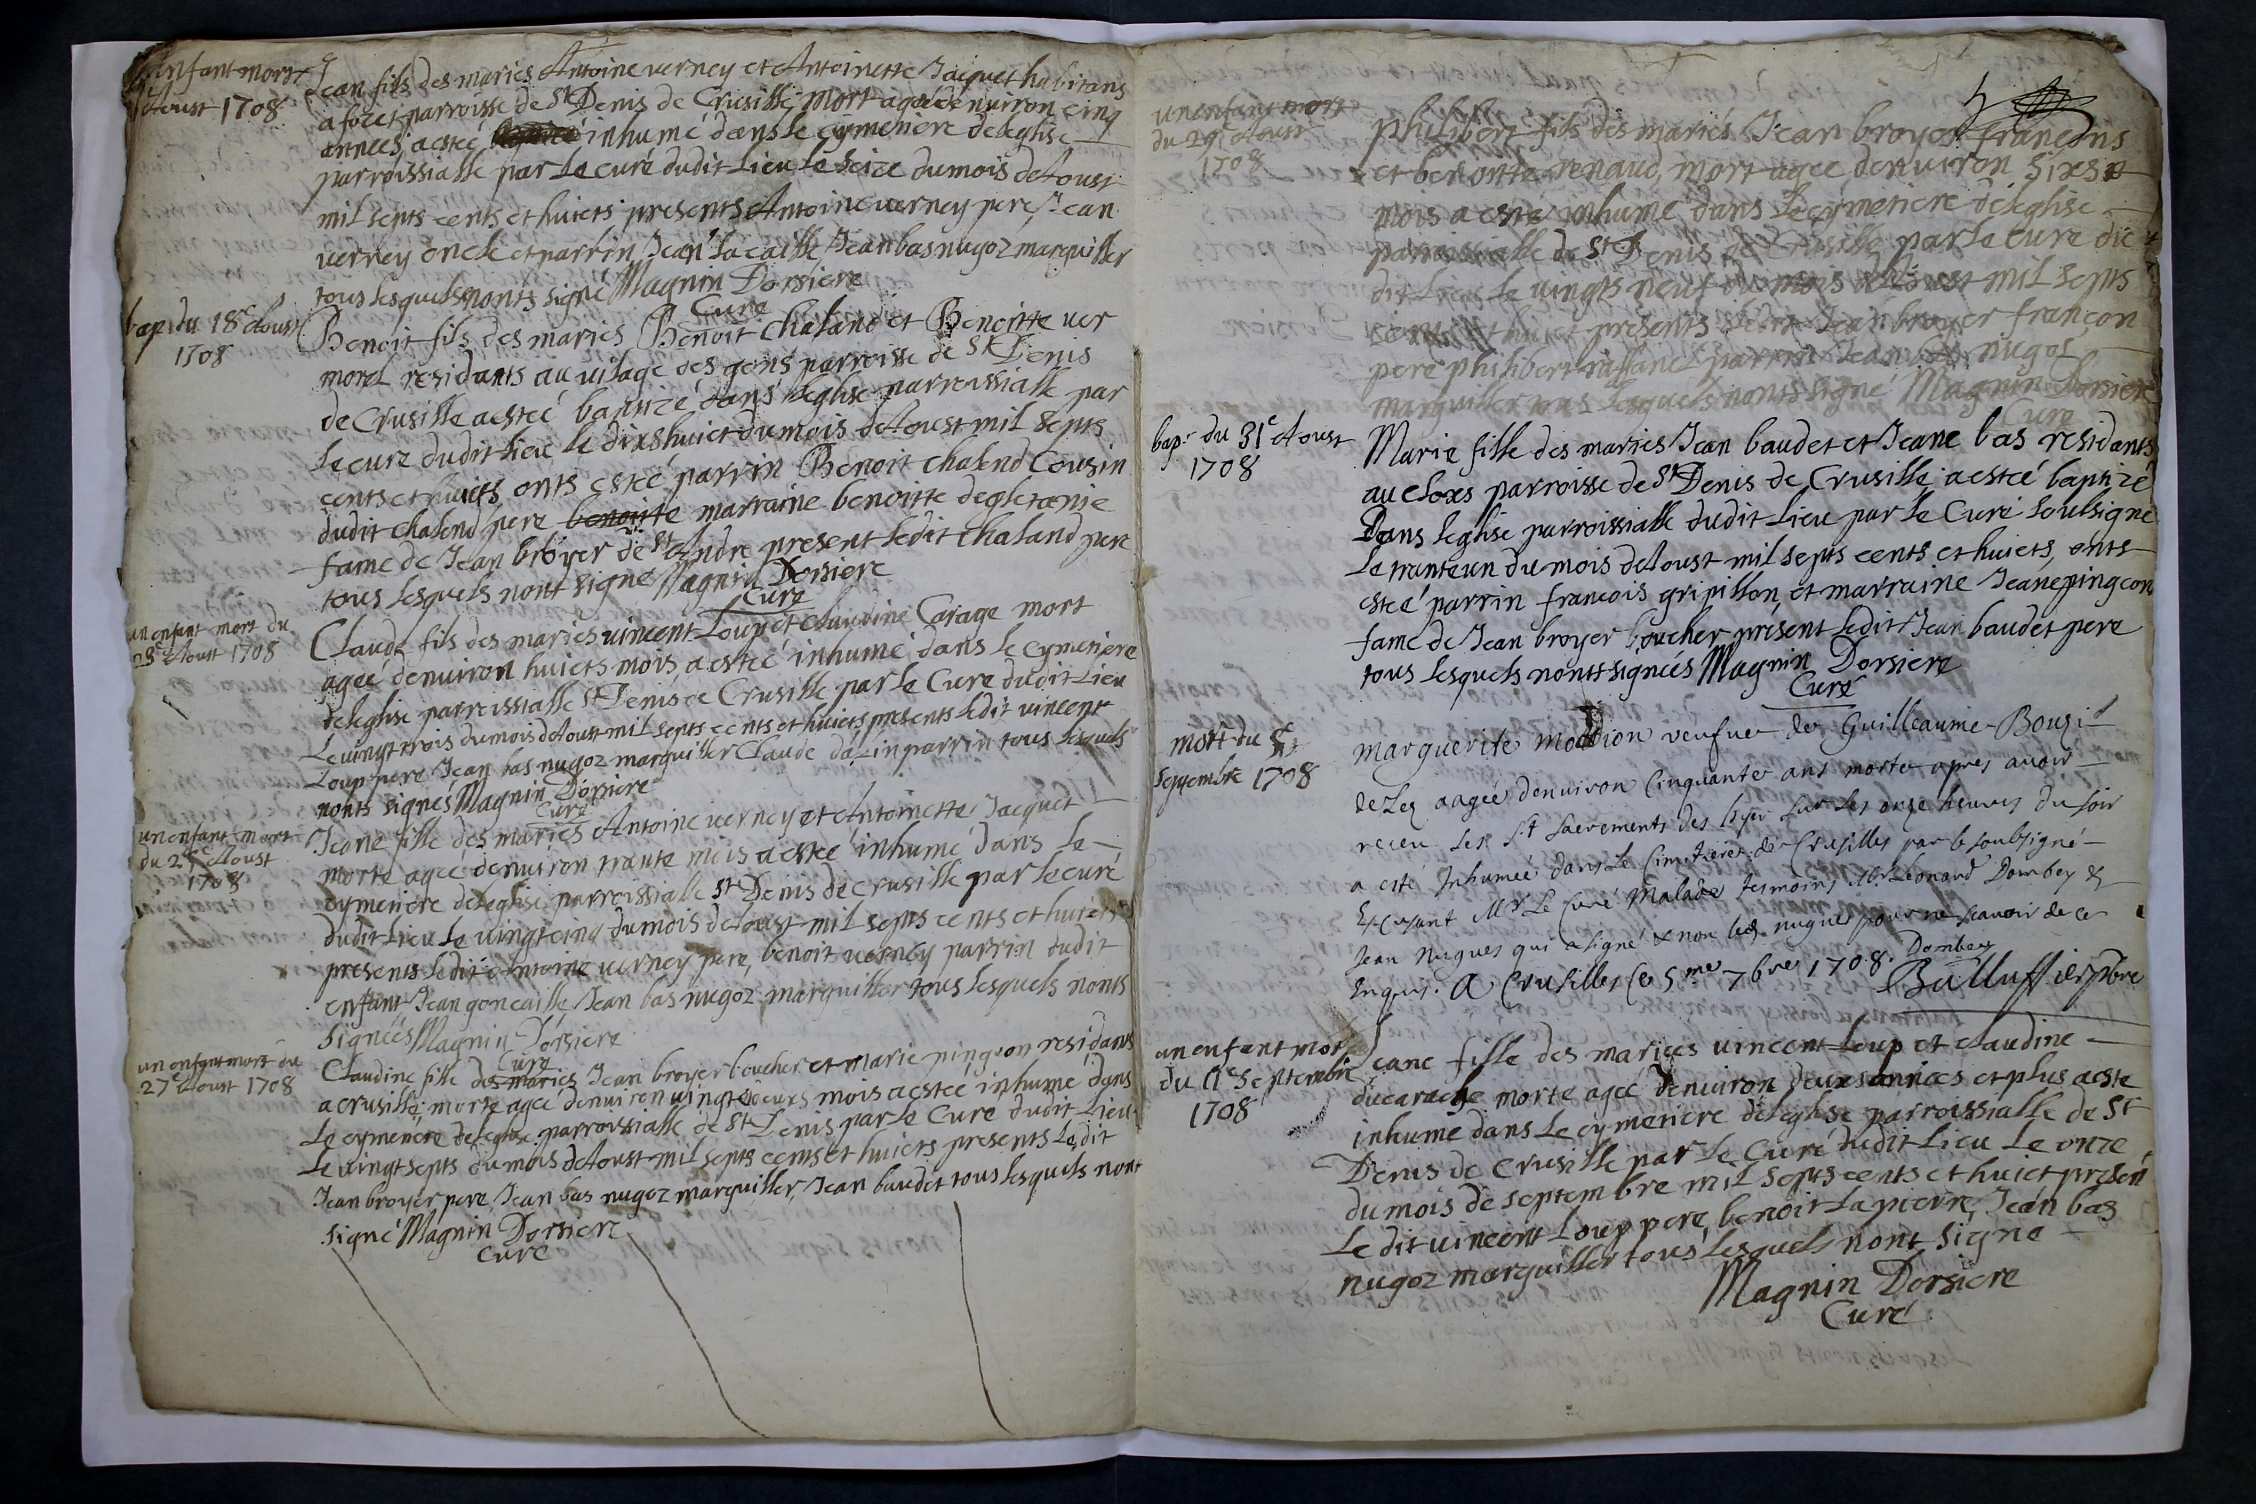 enfant mort
Aoust 1708
Jean fils des mariés Antoine verney et Antoinette Jacquet habitans
a foret parroisse de St Denis de Crusille mort agee denvirron cinq
années aesteé inhumé dans le cymeriere deleglise
parroissialle par Le curé dudit Lieu le seize dumois deAoust
mil septs cents et huicts presents Antoine verney pere Jean
verney oncle et parrin Jean Lacaille Jean bas nugoz marguiller
tous lesquels nonts signé Magnin Dorsiere
Curé
bap. du 18e Aoust
1708
Benoit fils des mariés Benoit chaland et Benoitte ver
morel residants au vilage des gons parroisse de St Denis
de Crusille aesteé baptizé dans leglise parroissialle par
Le curé dudit Lieu le dixshuict dumois deAoust mil septs
cents et huicts onts esteé parrin Benoit chalend Cousin
dudit chalend pere benoite marraine benoitte degletanie
fame de Jean broyer de St Andre present ledit chaland pere
tous lesquels nont signe Magnin Dorsiere
Curé
un enfant mort du
23e Aoust 1708
Claude fils des mariés vincent Loup et claudine Carage mort
ageé denvirron huicts mois aesteé inhumé dans le cymeriere
deleglise parroissialle St Denis de Crusille par le Curé dudit Lieu
Le vingt trois dumois deAoust mil septs cents et huicts presents ledit vincent
Loup pere Jean bas nugoz marguiller Claude dalin parrin tous lesquels
nonts signés Magnin Dorsiere
Curé
un enfant mort
du 25e Aoust
1708
Jeane fille des mariés Antoine verney et Antoinette Jacquet
morte ageé denvirron trante mois aesteé inhumé dans le
cymeriere deleglise parroissialle St Denis de Crusille par le curé
dudit Lieu Le vingt cinq dumois deAoust mil septs cents et huicts
presents ledit Antoine verney pere, benoit verney parrin dudit
enfant Jean goncaille Jean bas nugoz marguiller tous lesquels nonts
signeés Magnin Dorsiere
Curé
un enfant mort du
27e Aoust 1708
Claudine fille des mariés Jean broyer boucher et marie pingeon residans
a crusille morte ageé denvirron vingt deuxs mois aesteé inhumé dans
Le cymeriere deleglise parroissialle de St Denis par le Curé dudit Lieu
Le vingt septs dumois deAoust mil septs cents et huicts presents Ledit
Jean broyer pere, Jean bas nugoz marguiller, Jean baudet tous lesquels nont
signé Magnin Dorsiere
Curé
un enfant mort
du 29e Aoust
1708
philibert fils des mariés Jean broyer françons
et benoitte renaud, mort ageé denvirron sixs
mois a esteé inhumé dans le cymeriere deleglise
parroissialle de St Denis de Crusille par Le curé du
dit Lieu Le vingts neuf du mois deAoust mil septs
cents et huict presents ledit Jean broyer françon
pere philibert parrin Jean bas nugoz
marguiller tous lesquels nonts signé Magnin Dorsiere
Curé
bap. du 31e Aoust
1708
Marie fille des mariés Jean baudet et Jeane bas residants
au cloxs parroisse de St Denis de Crusille aesteé baptizé
Dans leglise parroissialle dudit Lieu par le Curé soubsigné
Le tranteun dumois deAoust mil septs cents et huicts, onts
esteé parrin francois gripillon, et marraine Jeane pingeon
fame de Jean broyer boucher présent ledit Jean baudet pere
tous lesquels nontt signeés Magnin Dorsiere
Curé
mort du 5e
septembre 1708
marguerite veufue de Guilleaume Bougi
de Lez aageé denuiron Cinquante ans morte apres auoir
receu les St sacrements des hyer sur les onze heures du soir
a esté Inhumeé dans le Cimetiere de Crusilles par le soubsigné
Mr Le Curé Malade tesmoins Mr Leonard Dombey &
Jean Nugues qui a signé & non led. nugues pour ne scauoir de ce
Enquis. A Crusilles Ce 5me 7bre 1708. Dombey
Balluffier pbre
un enfant mort
du 11e Septembre
1708
Jeane fille des mariees vincent Loup et claudine
ducarache morte ageé denvirron deuxs années et plus aeste
inhume dans Le cymeriere deleglise parroissialle de St
Denis de Crusille par Le Curé dudit Lieu Le onze
dumois de septembre mil septs cents et huict présen
Ledit vincent Loup pere, benoit Lapierre, Jean bas
nugoz marguiller tous lesquels nont signe
Magnin Dorsiere
Curé